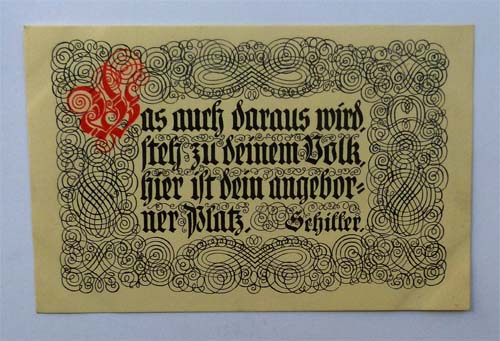 Was auch daraus wird
steh zu deinem Volk,
hier ist dein angebor=
ner Platz. Schiller.